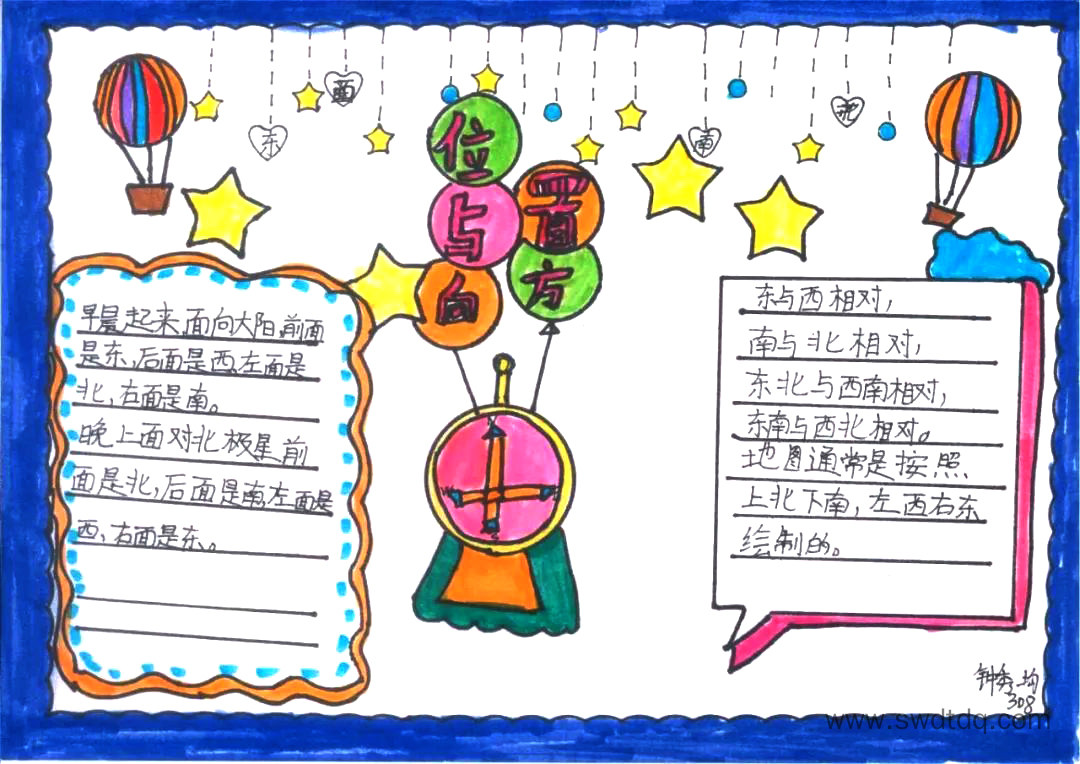 东
西
南
北
位置
与方
向
早晨起来,面向大阳,前面
是东,后面是西,左面是
北,右面是南。
晚上面对北极星,前
面是北,后面是南,左面是
西,右面是东。
东与西相对,
南与北相对,
东北与西南相对,
东南与西北相对。
地图通常是按照
上北下南,左西右东
绘制的。
308
www.swdtdq.com